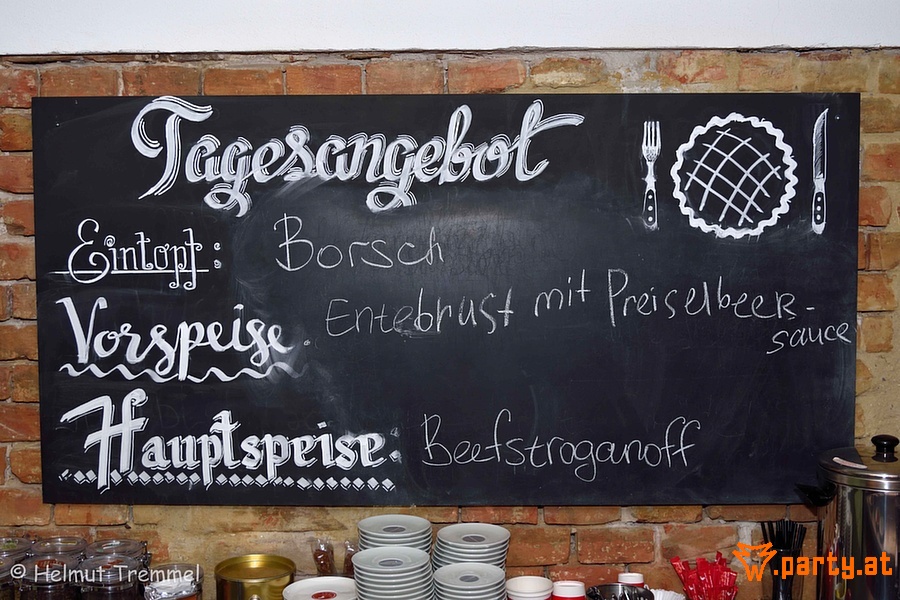 Tagesangebot
Eintopf: Borsch
Vorspeise: Entebrust mit Preiselbeer-
sauce
Hauptspeise: Beefstroganoff
© Helmut Tremmel
party.at